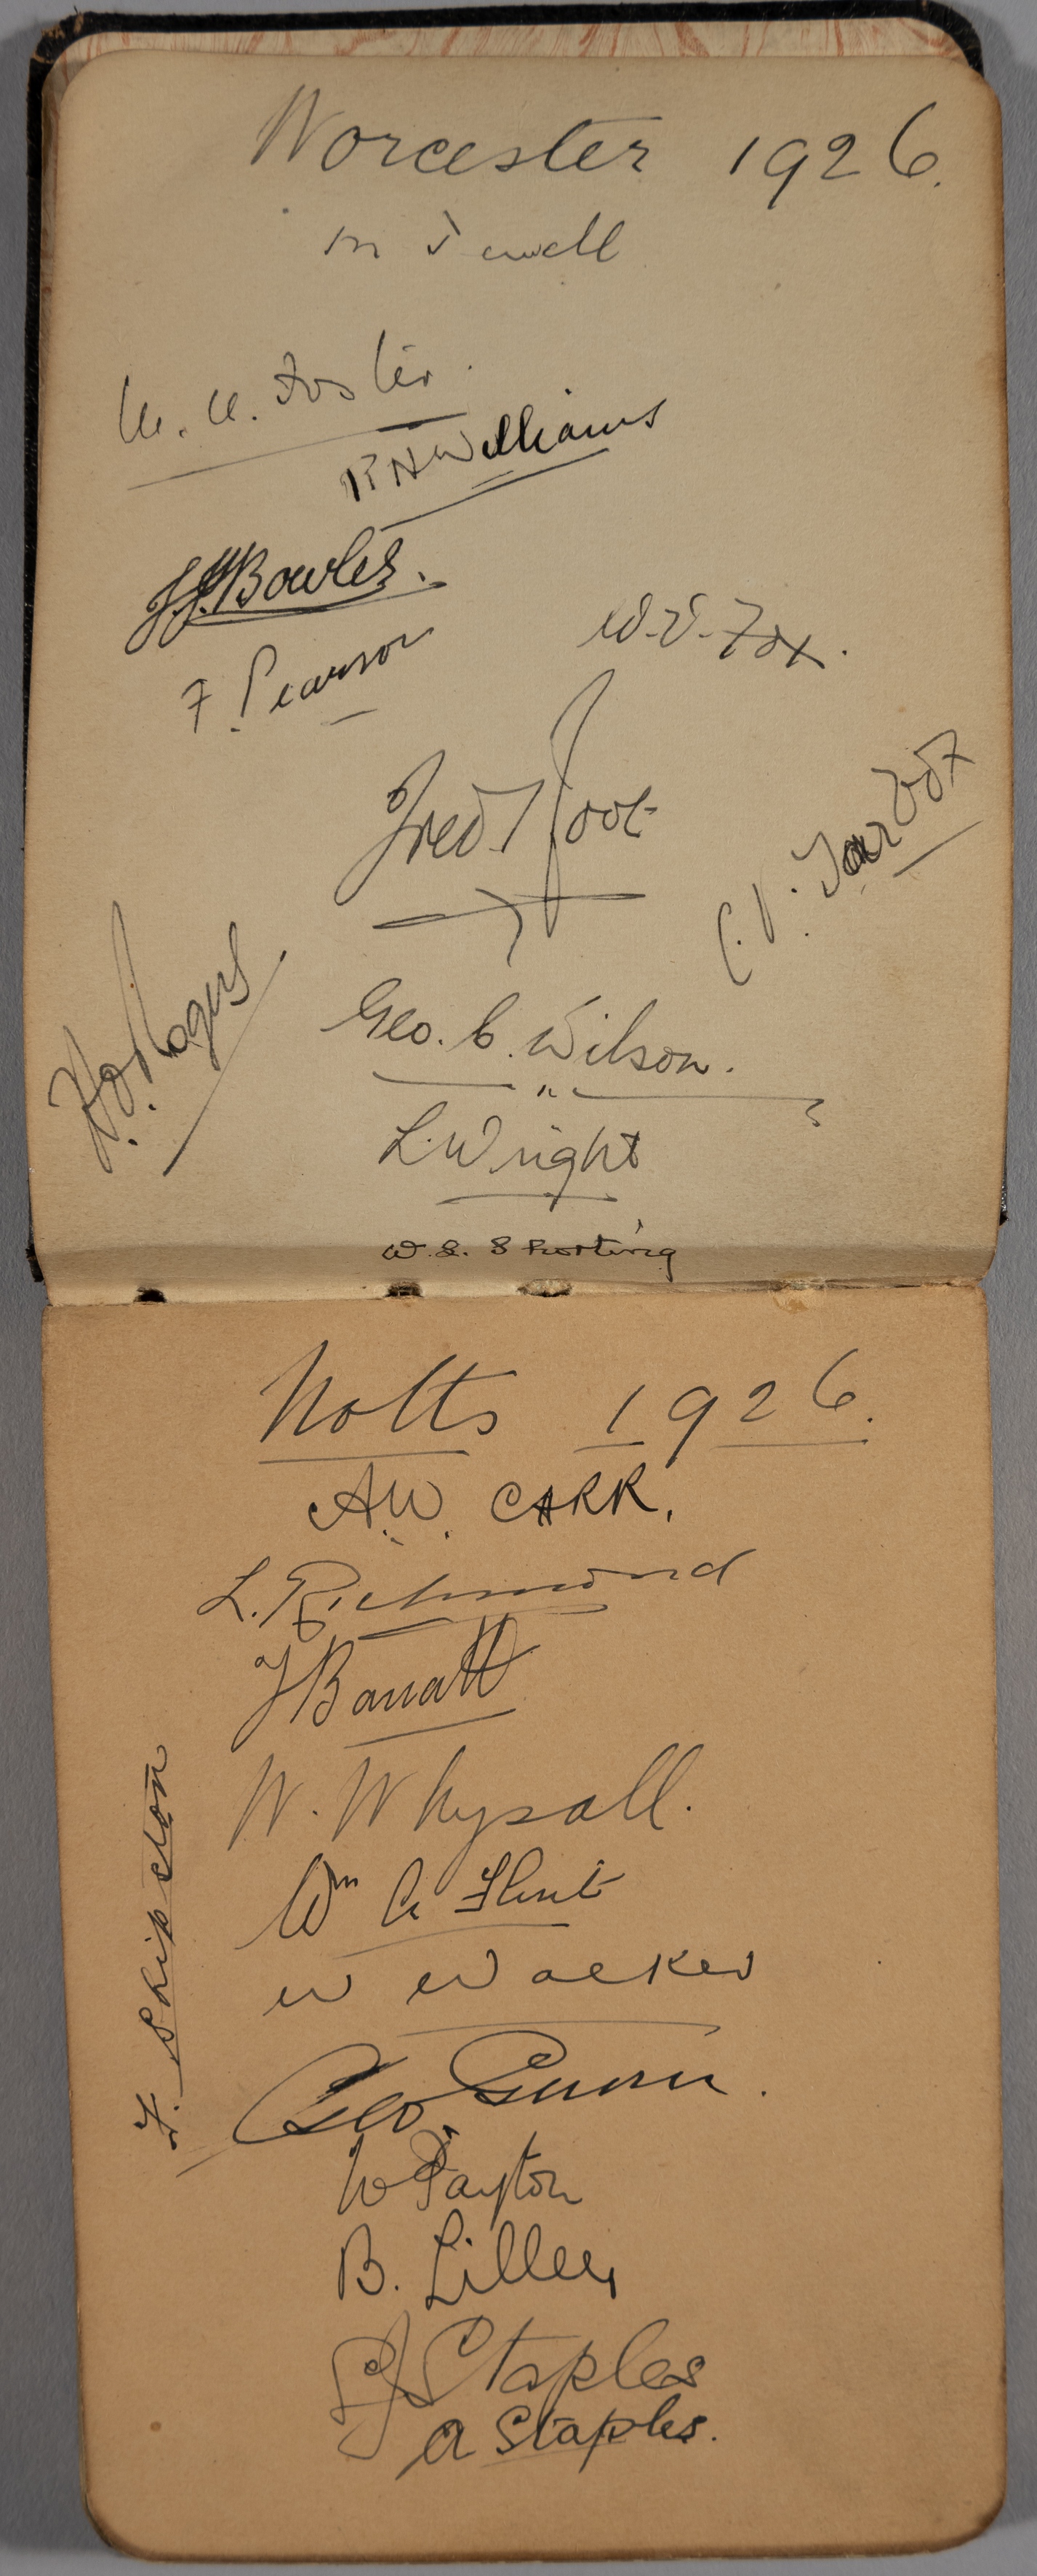 Worcester 1926.
M Jewell
M. K. Foster.
R H Williams
J.J. Bowles.
F. Pearson
W-V-Fox.
Fred Root
C. V. Tarbox
H. O. Rogers
Geo. C. Wilson.
L. Wright
W. E. Shorting
Notts 1926.
A.W. CARR.
L. Richmond
F Barratt
W. Whysall.
Wm A Flint
W Walker
F. Shipston
Geo. Gunn.
W Payton
B. Lilley
S J Staples
A Staples.